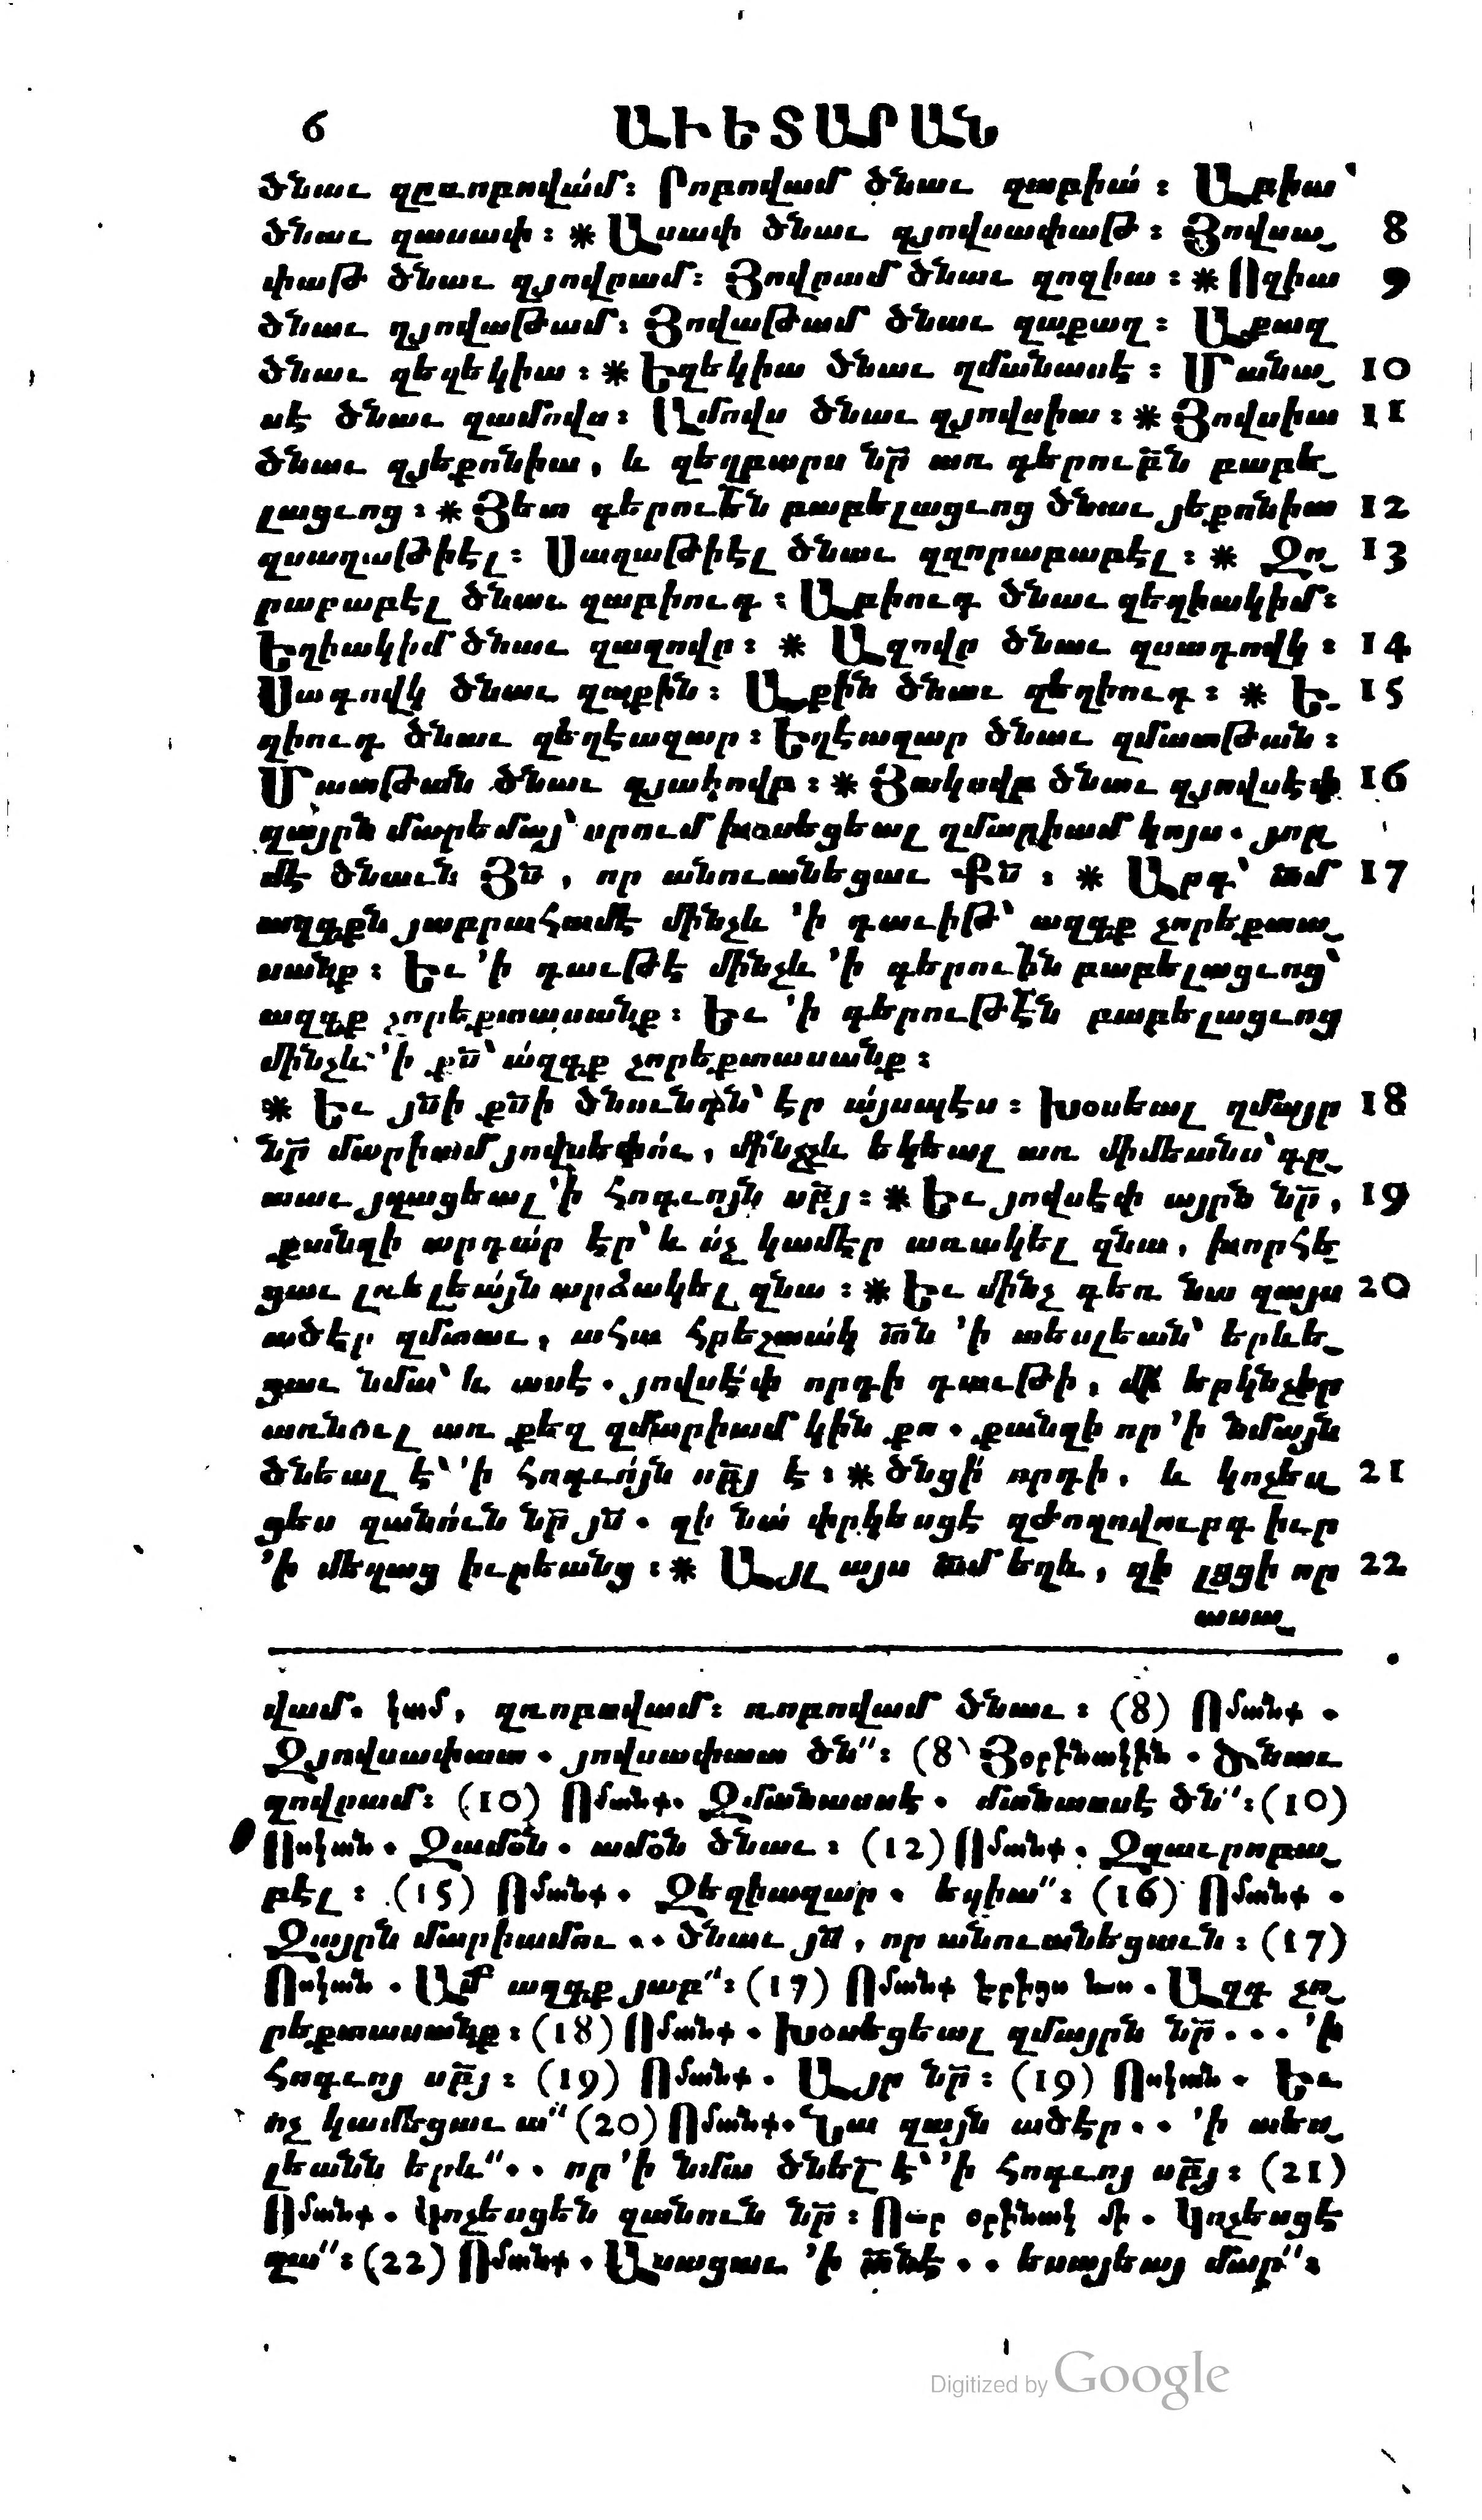 6 ԱՒԵՏԱՐԱՆ
ծնաւ զըռոբովա՛մ։ Րոբովամ ծնաւ զաբիա՛։ Աբիա՝
ծնաւ զասափ։ ✳ Ասափ ծնաւ զյովսափաթ։ Յովսա֊ 8
փաթ ծնաւ զյովրամ։ Յովրամ ծնաւ զոզիա։ ✳ Ոզիա 9
ծնաւ զյովաթամ։ Յովաթամ ծնաւ զաքազ։ Աքազ
ծնաւ զեզեկիա։ ✳ Եզեկիա ծնաւ զմանասէ։ Մանա֊ 10
սէ ծնաւ զամովս։ Ամովս ծնաւ զյովսիա։ ✳ Յովսիա 11
ծնաւ զյեքոնիա, և զեղբարս նր̅ առ գերութբ̅ն բաբե֊
լացւոց։ ✳ Յետ գերուե̅ն բաբելացւոց ծնաւ յեքոնիա 12
զսաղաթիէլ։ Սաղաթիէլ ծնաւ զզորաբաբէլ։ ✳ Զո֊ 13
րաբաբէլ ծնաւ զաբիուդ։ Աբիուդ ծնաւ զեղիակիմ։
Եղիակիմ ծնաւ զազովր։ ✳ Ազովր ծնաւ զսադովկ։ 14
Սադովկ ծնաւ զաքին։ Աքին ծնաւ զեղիուդ։ ✳ Ե֊ 15
ղիուդ ծնաւ զեղէազար։ Եղէազար ծնաւ զմատթան։
Մատթան ծնաւ զյակովբ։ ✳ Յակովբ ծնաւ զյովսէփ 16
զայրն մարեմայ՝ որում խօսեցեալ զմարիամ կոյս. յոր֊
մէ ծնաւն Յս̅, որ անուանեցաւ Քս̅։ ✳ Արդ՝ ա̅մ 17
ազգքն յաբրահամէ մինչև ՚ի դաւիթ՝ ազգք չորեքտա֊
սանք։ Եւ ՚ի դաւթէ մինչև ՚ի գերուի̅ն բաբելացւոց՝
ազգք չորեքտասանք։ Եւ ՚ի գերութէ̅ն բաբելացւոց
մինչև ՚ի քս̅՝ ա՛զգք չորեքտասանք։
✳ Եւ յս̅ի քս̅ի ծնունդն՝ էր ա՛յսպէս։ Խօսեալ զմայր 18
նր̅ մարիամ յովսեփու, մինչչև եկեալ առ միմեանս՝ գը֊
տաւ յղացեալ ՚ի հոգւոյն սր̅յ։ ✳ Եւ յովսէփ այրն նր̅, 19
քանզի արդա՛ր էր՝ և ո՛չ կամէր առակել զնա, խորհե֊
ցաւ լռելեա՛յն արձակել զնա։ ✳ Եւ մինչ դեռ նա զայս 20
ածէր զմտաւ, ահա հրեշտակ տ̅ն ՚ի տեսլեան՝ երևե֊
ցաւ նմա՝ և ասէ. յովսէ՛փ որդի դաւթի, մի՛ երկնչիր
առնուլ առ քեզ զմարիամ կին քո. քանզի որ ՚ի նմայն
ծնեալ է՝ ՚ի հոգւո՛յն սր̅յ է։ ✳ ծնցի՛ որդի, և կոչես֊ 21
ցես զանո՛ւն նր̅ յս̅. զի նա՛ փրկեսցէ զժողովուրդ իւր
՚ի մեղաց իւրեանց։ ✳ Այլ այս ա̅մ եղև, զի լցցի որ 22
ասա֊
վամ. կամ, զռոբովամ։ ռոբովամ ծնաւ։ (8) Ոմանք.
Զյովսափատ. յովսափատ ծն՟։ (8) Յօրինակին. Ծնաւ
զովրամ։ (10) Ոմանք. Զմանասսէ. մանասսէ ծն՟։ (10)
Ոսկան. Զամօն. ամօն ծնաւ։ (12) Ոմանք. Զզաւրոբա֊
բէլ։ (15) Ոմանք. Զեղիազար. եղիա՟։ (16) Ոմանք.
Զայրն մարիամու.. ծնաւ յս̅, որ անուանեցաւն։ (17)
Ոսկան. Ամ̅ ազգք յաբ՟։ (17) Ոմանք երիցս ևս. Ազգ չո֊
րեքտասանք։ (18) Ոմանք. Խօսեցեալ զմայրն նր̅... ՚ի
հոգւոյ սր̅յ։ (19) Ոմանք. Այր նր̅։ (19) Ոսկան. Եւ
ոչ կամեցաւ ա՟ (20) Ոմանք. Նա զայն ածէր.. ՚ի տես֊
լեանն երև՟.. որ ՚ի նմա ծնել̅ է՝ ՚ի հոգւոյ սր̅յ։ (21)
Ոմանք. Կոչեսցեն զանուն նր̅։ Ուր օրինակ մի. Կոչեսցէ
զա՟։ (22) Ոմանք. Ասացաւ ՚ի տ̅նէ.. եսայեայ մար՟։
Digitized by Google